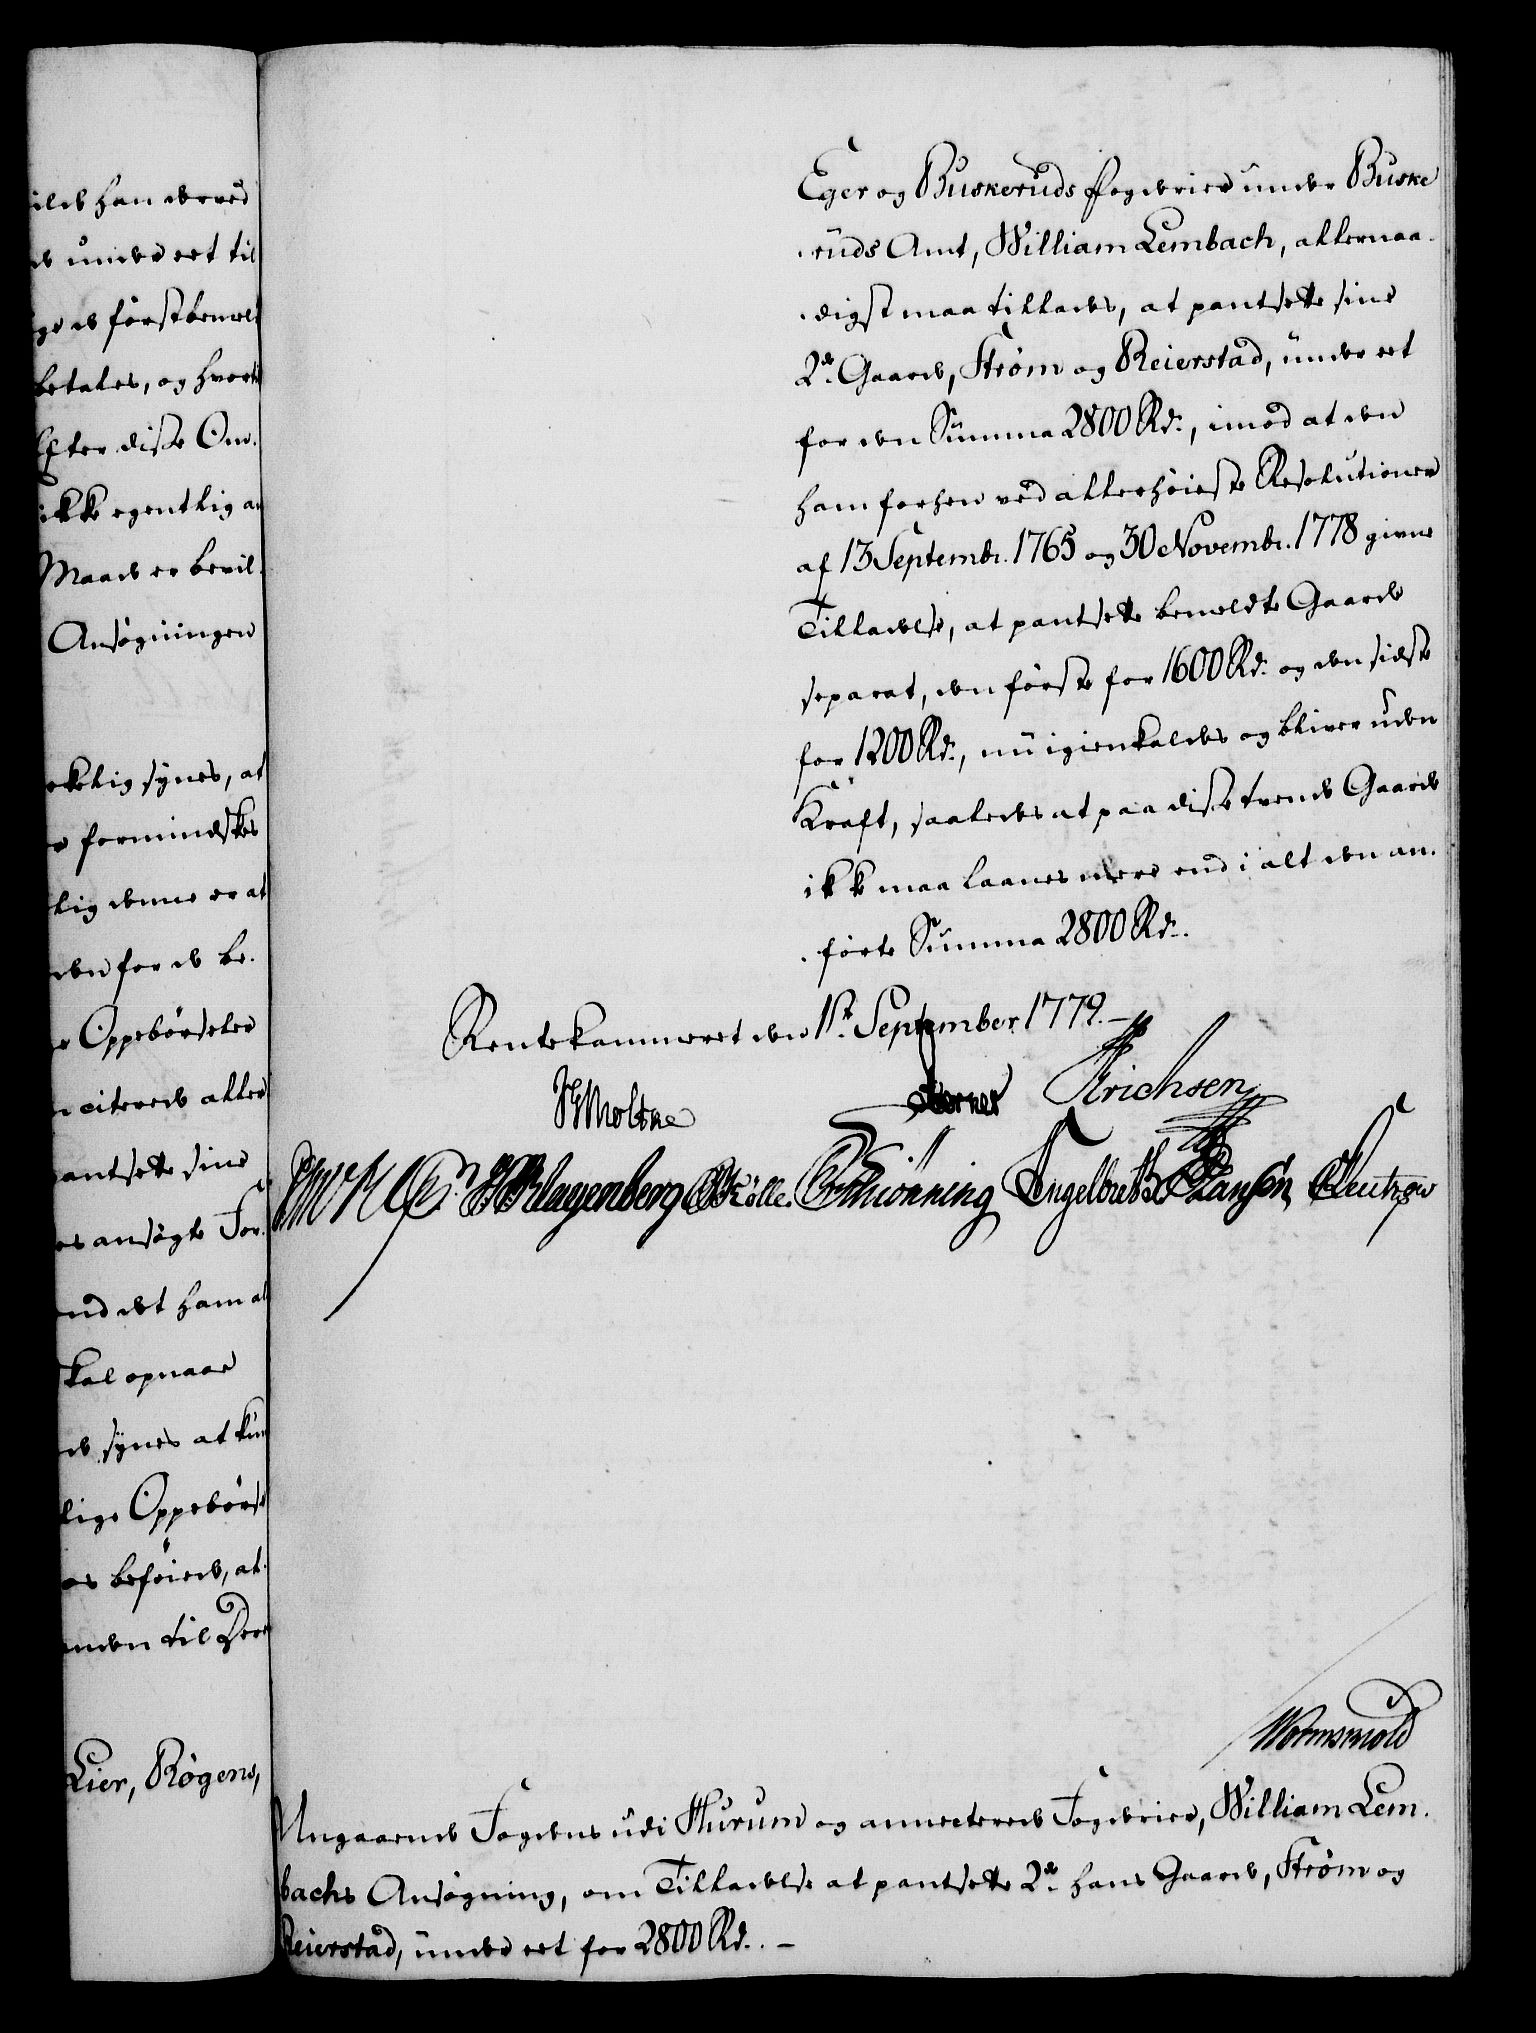 ilde han derved
de under eet til
ge deførstbemel
betales, og hvort
Efter disse Om.
ikke egentlig an
Maade er bevil.
Ansøgningen
kelig synes, at
formindskes
lig denne er at
den for de be.
Oppebørseler
citerede aller
pantsette sine
es ansøgte For.
end det ham al
skal opnaae
de synes at kun
lige Oppebørs
es beføiede, at
anden til Der
Lier, Røgens,
Eger og Buskeruds Fogderier under Buske
-ruds Amt, William Lembach, allernaa-
-digst maa tillades, at pantsette sine
2de Gaarde, Strøm og Reierstad, under eet
for den Summa 2800 Rd., imod at den
ham forhen ved allerhøieste Resolutioner
af 13 Septembr. 1765 og 30 Novembr. 1778 givne
Tilladelse, at pantsette bemeldte Gaarde
separat, den første for 1600 Rd. og den sidste
for 1200 Rd., nu igienkaldes og bliver uden
Kraft, saaledes at paa disse tvende Gaarde
ikke maa laanes mere end i alt den an-
-førte Summa 2800 Rd.
Rentekammeret den 1st. September 1779.
Moltke Erichsen
Klagenberg Rølle Schiønning Engelbret Hansen Leutzow
Wormskiold
Angaaende Fogdens udi Hurum og annecterede Fogderier, William Lem-
bachs Ansøgning, om Tilladelse at pantsette 2de hans Gaarde, Strøm og
Reierstad, under eet for 2800 Rd. -